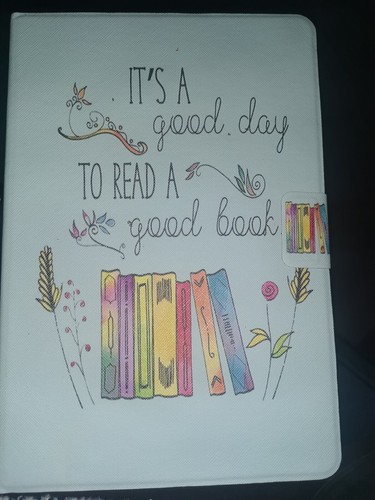 IT'S A
good day
TO READ A
good book